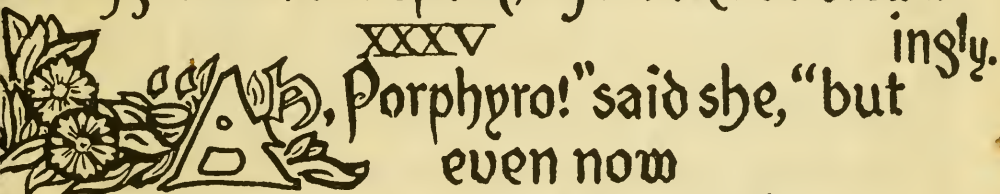 XXXV
ingly.
“Ah, Porphyro!” said she, “but
even now